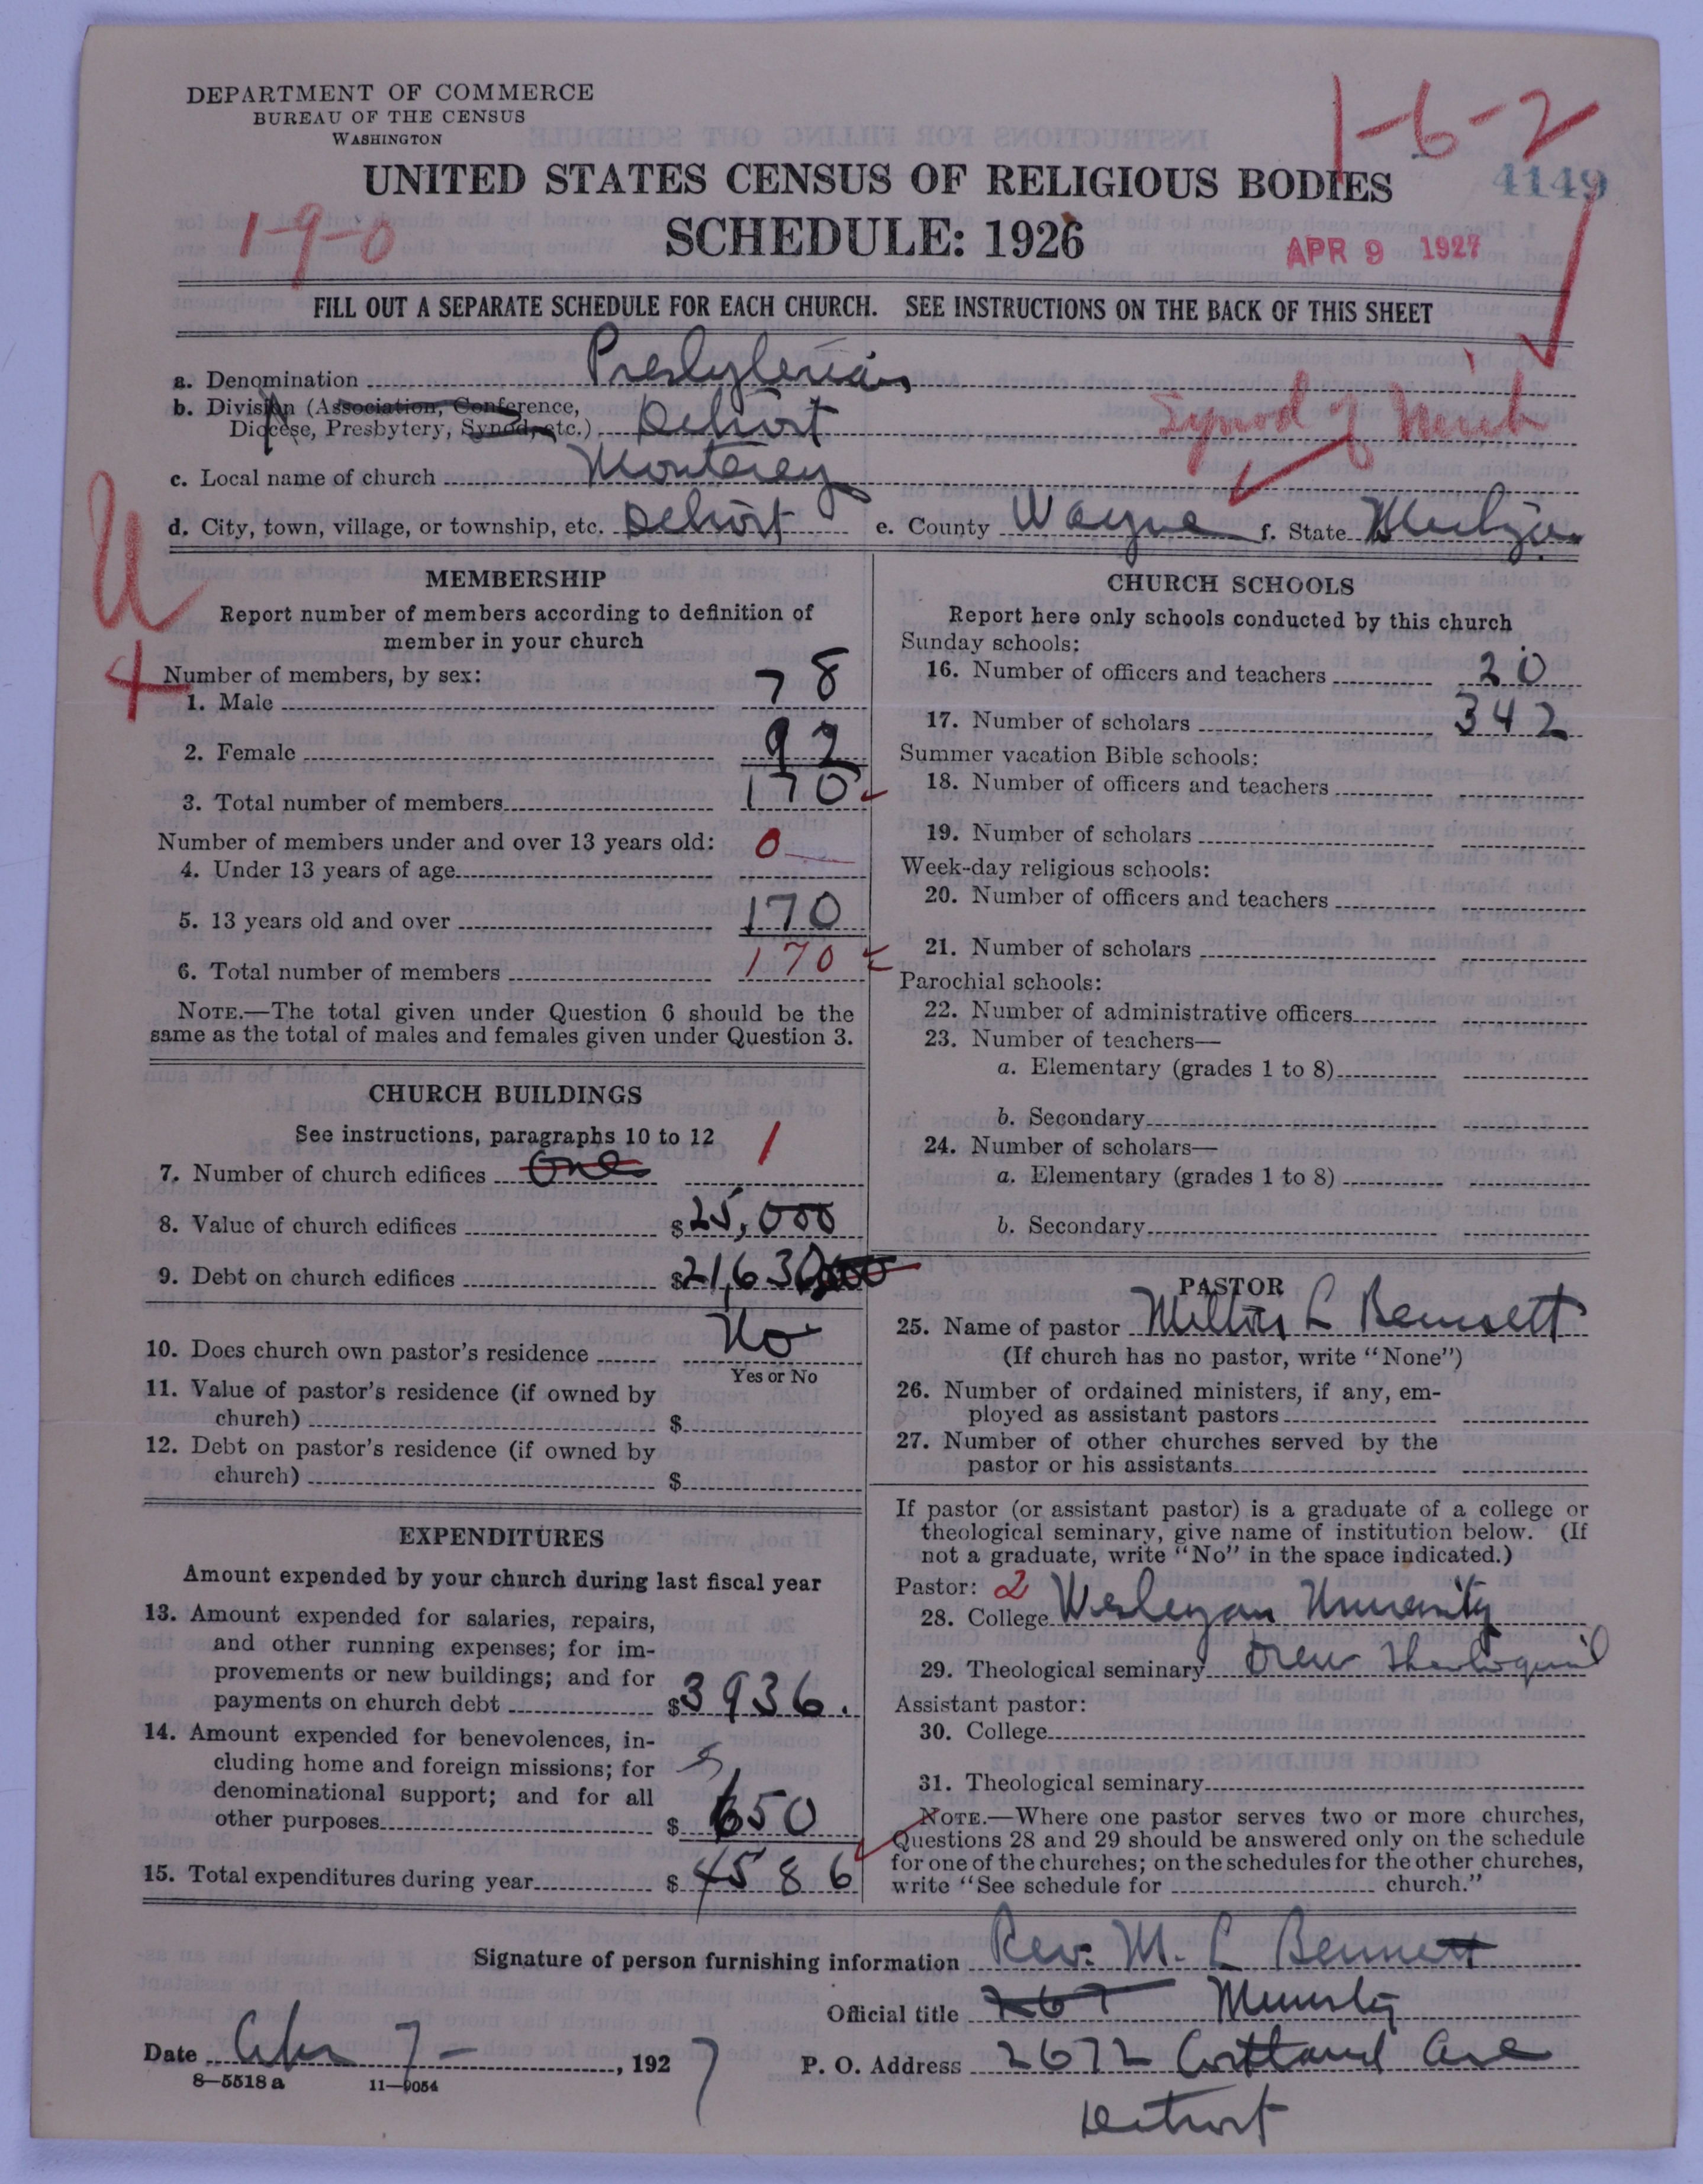 DEPARTMENT OF COMMERCE
BUREAU OF THE CENSUS
WASHINGTON
1-6-2
4149
UNITED STATES CENSUS OF RELIGIOUS BODIES
SCHEDULE: 1926
1-9-0
APR 9 1927
FILL OUT A SEPARATE SCHEDULE FOR EACH CHURCH. SEE INSTRUCTIONS ON THE BACK OF THIS SHEET
a. Denomination Presbyterian
b. Division (Association, Conference,
Diocese, Presbytery, Synod, etc.) Detroit Synod of Mich
c. Local name of church Monterey
d. City, town, village, or township, etc. Detroit e. County Wayne f. State Michigan
MEMBERSHIP
Report number of members according to definition of
member in your church
Number of members, by sex:
1. Male 78
2. Female 92
3. Total number of members 170
Number of members under and over 13 years old:
4. Under 13 years of age 0
5. 13 years old and over 170
6. Total number of members 170
NOTE.—The total given under Question 6 should be the
same as the total of males and females given under Question 3.
CHURCH BUILDINGS
See instructions, paragraphs 10 to 12
7. Number of church edifices One 1
8. Value of church edifices $25,000
9. Debt on church edifices $21,630
10. Does church own pastor's residence No
Yes or No
11. Value of pastor's residence (if owned by
church) $
12. Debt on pastor's residence (if owned by
church) $
EXPENDITURES
Amount expended by your church during last fiscal year
13. Amount expended for salaries, repairs,
and other running expenses; for im-
provements or new buildings; and for
payments on church debt $3936.
14. Amount expended for benevolences, in-
cluding home and foreign missions; for
denominational support; and for all
other purposes $ 650
15. Total expenditures during year $ 4586
CHURCH SCHOOLS
Report here only schools conducted by this church
Sunday schools:
16. Number of officers and teachers 20
17. Number of scholars 342
Summer vacation Bible schools:
18. Number of officers and teachers
19. Number of scholars
Week-day religious schools:
20. Number of officers and teachers
21. Number of scholars
Parochial schools:
22. Number of administrative officers
23. Number of teachers—
a. Elementary (grades 1 to 8)
b. Secondary
24. Number of scholars—
a. Elementary (grades 1 to 8)
b. Secondary
PASTOR
25. Name of pastor L Bennett
(If church has no pastor, write "None")
26. Number of ordained ministers, if any, em-
ployed as assistant pastors
27. Number of other churches served by the
pastor or his assistants
If pastor (or assistant pastor) is a graduate of a college or
theological seminary, give name of institution below. (If
not a graduate, write "No" in the space indicated.)
Pastor: 2
28. College Wesleyan University
29. Theological seminary Drew Theological
Assistant pastor:
30. College
31. Theological seminary
NOTE.—Where one pastor serves two or more churches,
Questions 28 and 29 should be answered only on the schedule
for one of the churches; on the schedules for the other churches,
write "See schedule for church."
Signature of person furnishing information Rev. M. L Bennett
Official title 267 Minister
Date Apr 7 - , 1927 P. O. Address 2672 Cortland Ave
8—5518 a 11—9054
Detroit